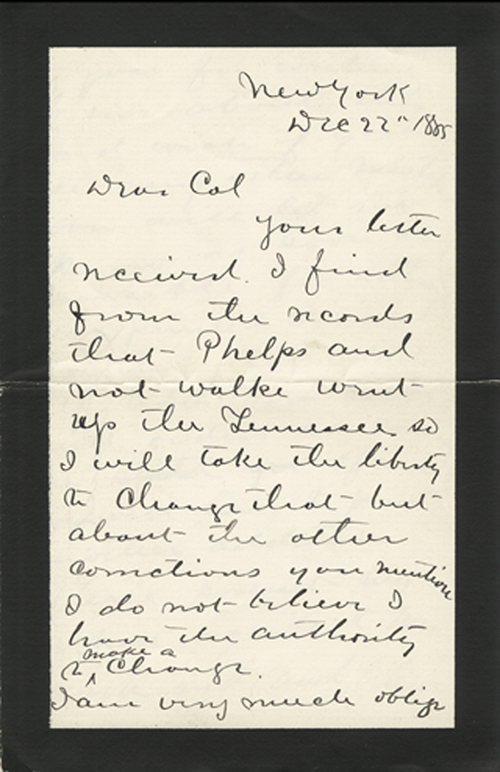 New York
Dec 22" 1885
Dear Col
Your letter
received. I find
from the records
that Phelps and
not Walke went
up the Tennessee so
I will take the liberty
to change that but
about the other
corrections you mention
I do not believe I
have the authority
make a
to ^ change.
I am very much oblige